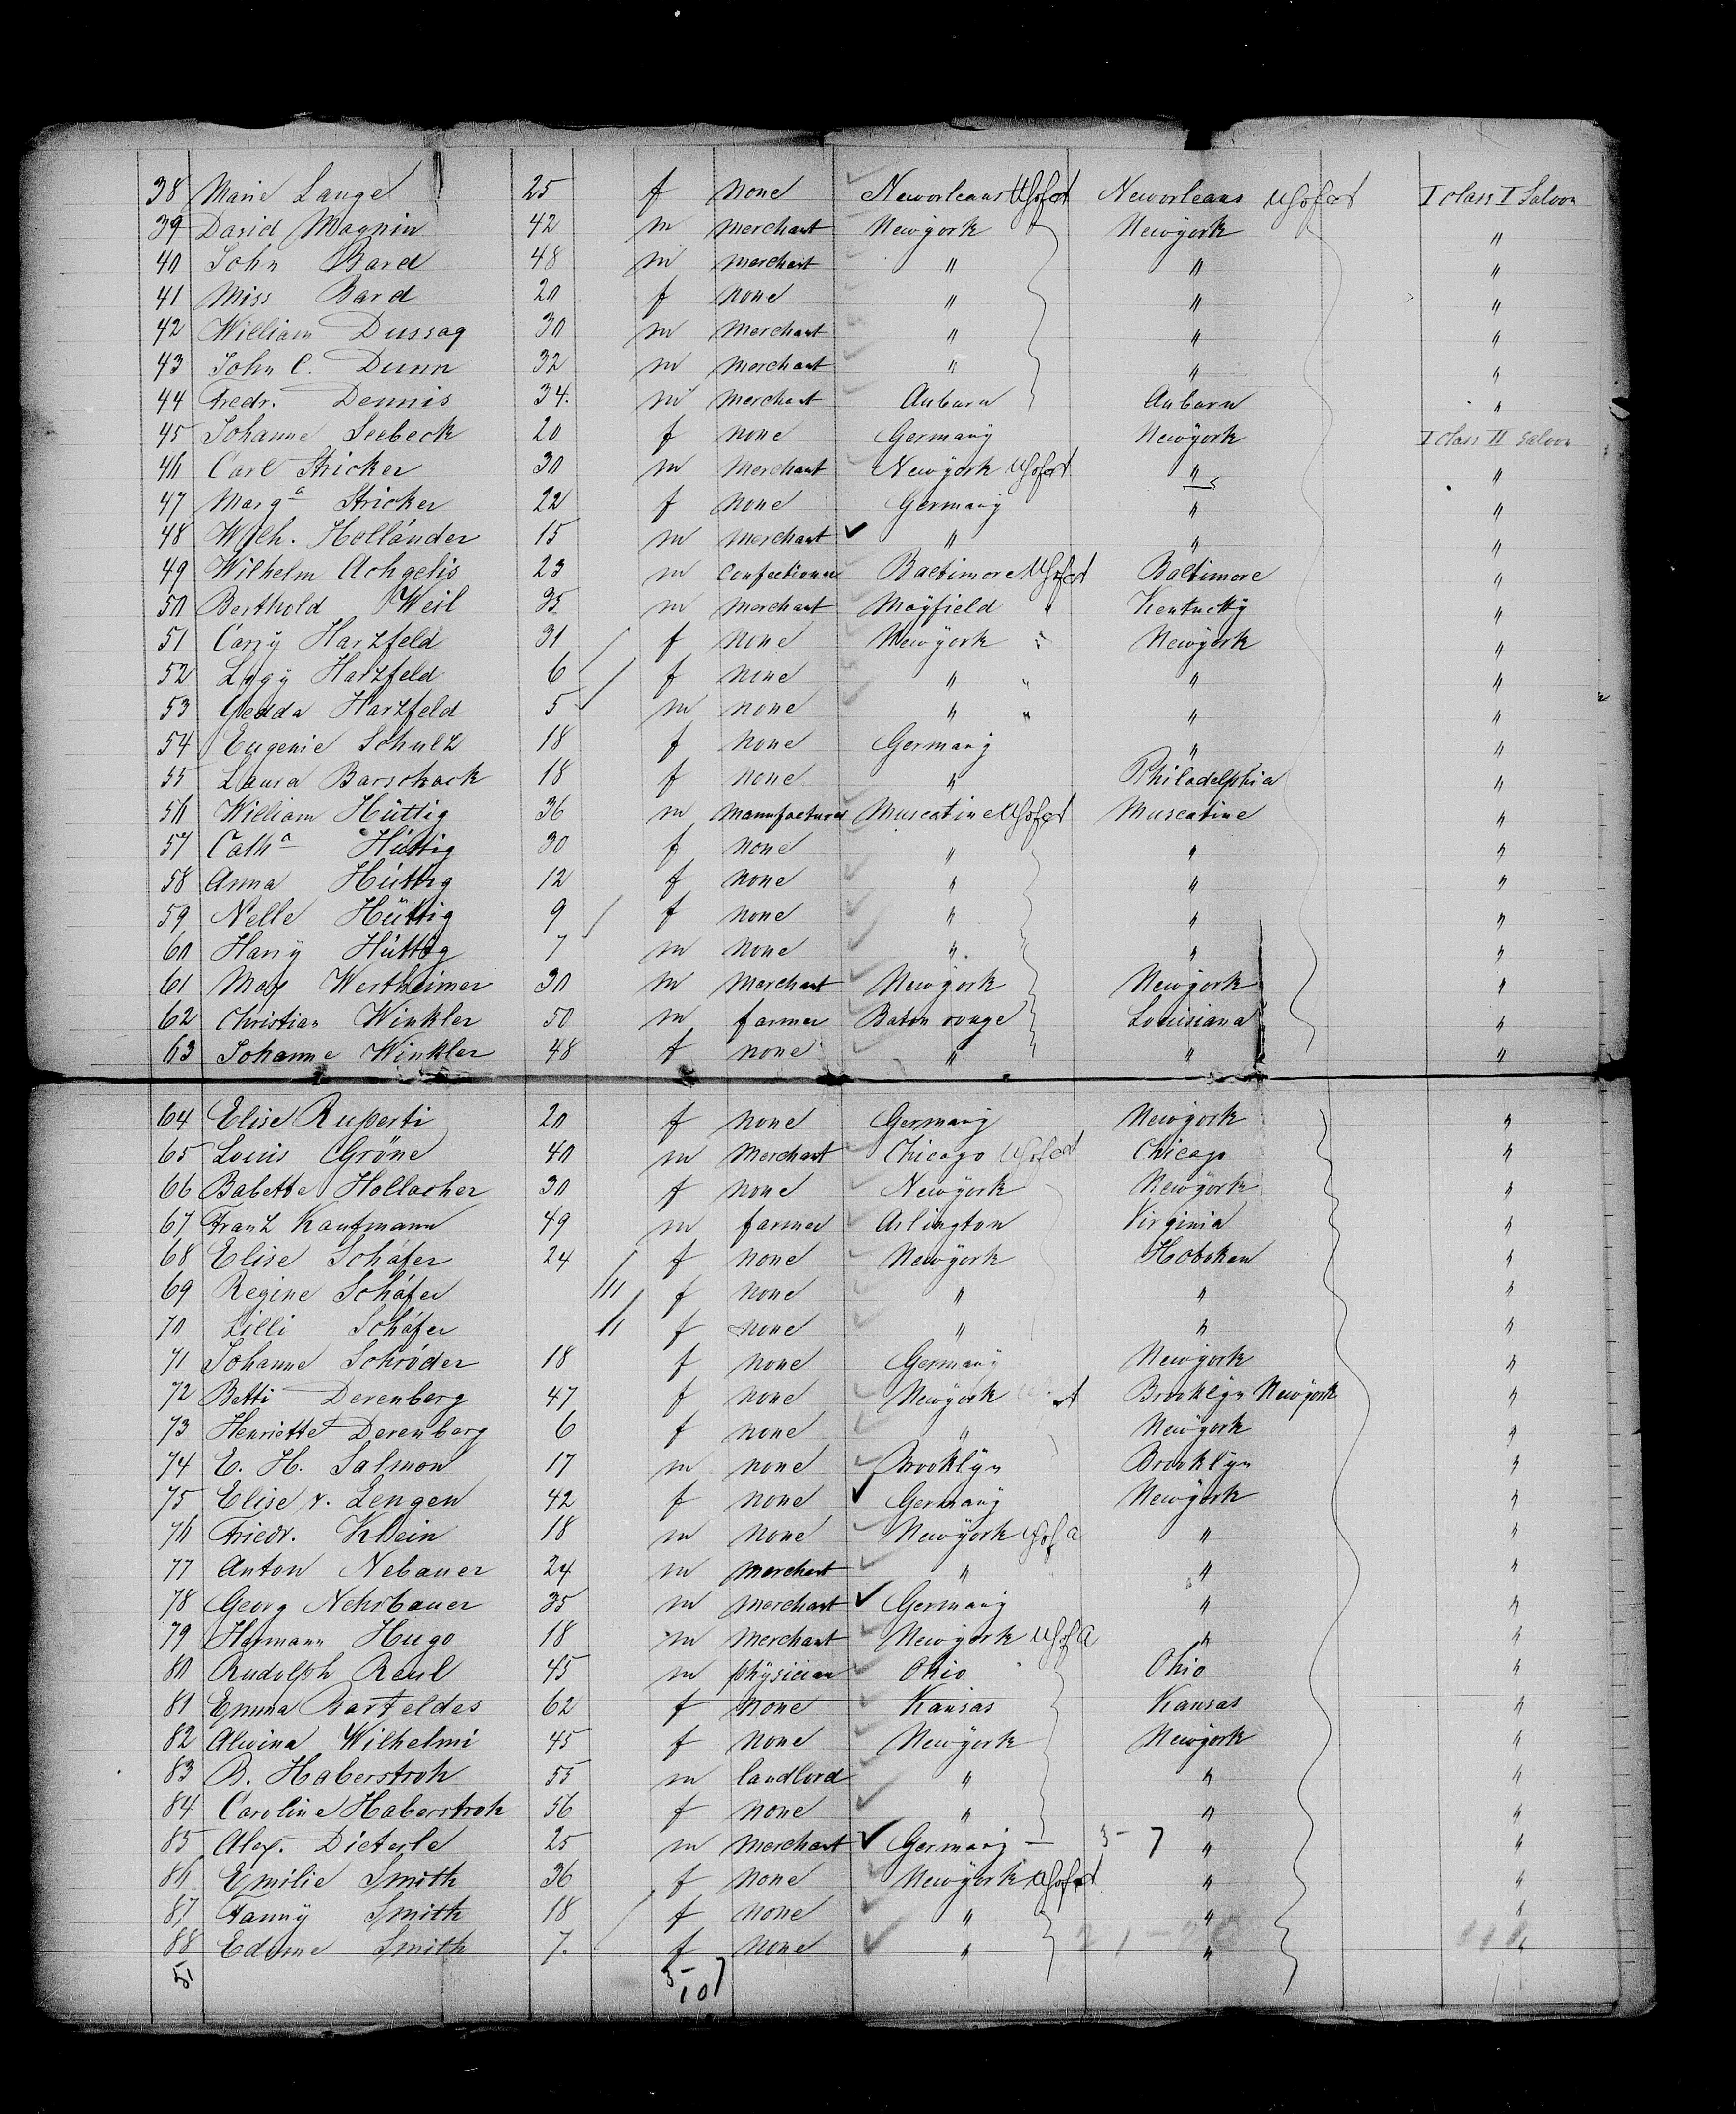 38 Marie Lange 25 f none Neworleans U S of A Neworleans U S of A I class I Saloon
39 David Magnin 42 m merchant Newÿork Newÿork "
40 John Bard 48 m merchant " " "
41 Miss Bard 20 f none " " "
42 William Dussaq 30 m merchant " " "
43 John C. Dunn 32 m merchant " " "
44 Fredr. Dennis 34. m merchant Auburn Auburn "
45 Johanne Seebeck 20 f none Germanÿ Newÿork I class II Saloon
46 Carl Stricker 30 m merchant Newÿork U S of A " "
47 Marg.a Stricker 22 f none Germanÿ " "
48 Wilh. Holländer 15 m merchant " " "
49 Wilhelm Achgelis 23 m confectioner Baltimore U S of A Baltimore "
50 Berthold Weil 35 m merchant Maÿfield " Kentuckÿ "
51 Carrÿ Harzfeld 31 f none Newÿork " Newÿork "
52 Harzfeld 6 f none " " " "
53 Hedda Harzfeld 5 m none " " " "
54 Eugenie Schulz 18 f none Germanÿ " "
55 Laura Barschack 18 f none " Philadelphia "
56 William Hüttig 36 m manufacturer Muscatine U S of A Muscatine "
57 Cath.a Hüttig 30 f none " " "
58 Anna Hüttig 12 f none " " "
59 Nelle Hüttig 9 f none " " "
60 Harrÿ Hüttig 7 m none " " "
61 Max Wertheimer 30 m merchant Newÿork Newÿork "
62 Christian Winkler 50 m farmer Baton rouge Louisiana "
63 Johanne Winkler 48 f none " " "
64 Elise Ruperti 20 f none Germanÿ Newÿork "
65 Louis Gröne 40 m merchant Chicago U S of A Chicago "
66 Babette Hollacher 30 f none Newÿork Newÿork "
67 Franz Kaufmann 49 m farmer Arlington Virginia "
68 Elise Schäfer 24 f none Newÿork Hoboken "
69 Regine Schäfer f none " " "
70 Lilli Schäfer 11 f none " " "
71 Johanne Schröder 18 f none Germanÿ Newÿork "
72 Betti Derenberg 47 f none Newÿork Brooklÿn Newÿork "
73 Henriette Derenberg 6 f none " Newÿork "
74 E. H. Salmon 17 m none Brooklÿn Brooklÿn "
75 Elise v. Lengen 42 f none Germanÿ Newÿork "
76 Friedr. Klein 18 m none Newÿork U S of A " "
77 Anton Nebauer 24 m merchant " " "
78 Georg Nehrbauer 35 m merchant Germanÿ " "
79 Hermann Hugo 18 m merchant Newÿork U S of A " "
80 Rudolph Reul 45 m phÿsician Ohio " Ohio "
81 Emma Barteldes 62 f none Kansas Kansas "
82 Alwina Wilhelmi 45 f none Newÿork Newÿork "
83 B. Haberstroh 55 m landlord " " "
84 Caroline Haberstroh 56 f none " " "
85 Alex. Dieterle 25 m merchant Germanÿ — 5-7 " "
86 Emilie Smith 36 f none Newÿork U S of A " "
87 Fannÿ Smith 18 f none " " "
88 Edme Smith 7. f none " " "
51 5- 107